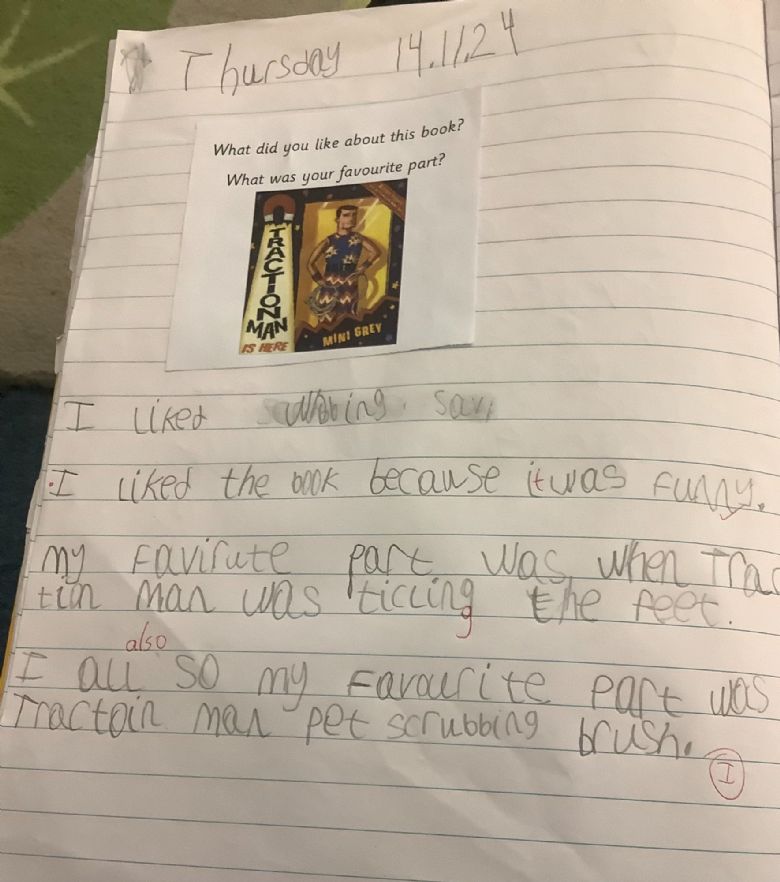 Thursday 14.11.24
What did you like about this book?
What was your favourite part?
TRACTION MAN
IS HERE
MINI GREY
I liked
I liked the book because it was funny.
my Favirute part was when Trac
tion man was ticcing the feet.
also
I all so my Favourite part was
Tractoin man pet scrubbing brush.
I